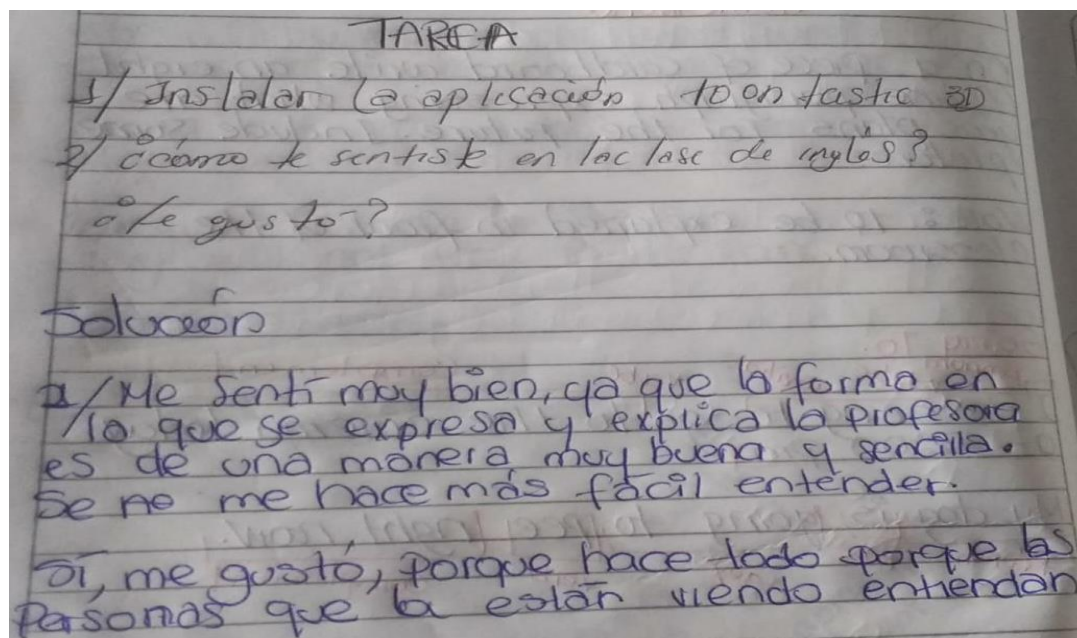 TAREA
1/ Instalar la aplicación toontastic 3D
2/ ¿cómo te sentiste en la clase de inglés?
¿te gustó?
Solución
2/ Me sentí muy bien, ya que la forma en
la que se expresa y explica la profesora
es de una manera muy buena y sencilla.
Se me hace más fácil entender.
Sí, me gustó, porque hace todo porque las
Personas que la están viendo entiendan